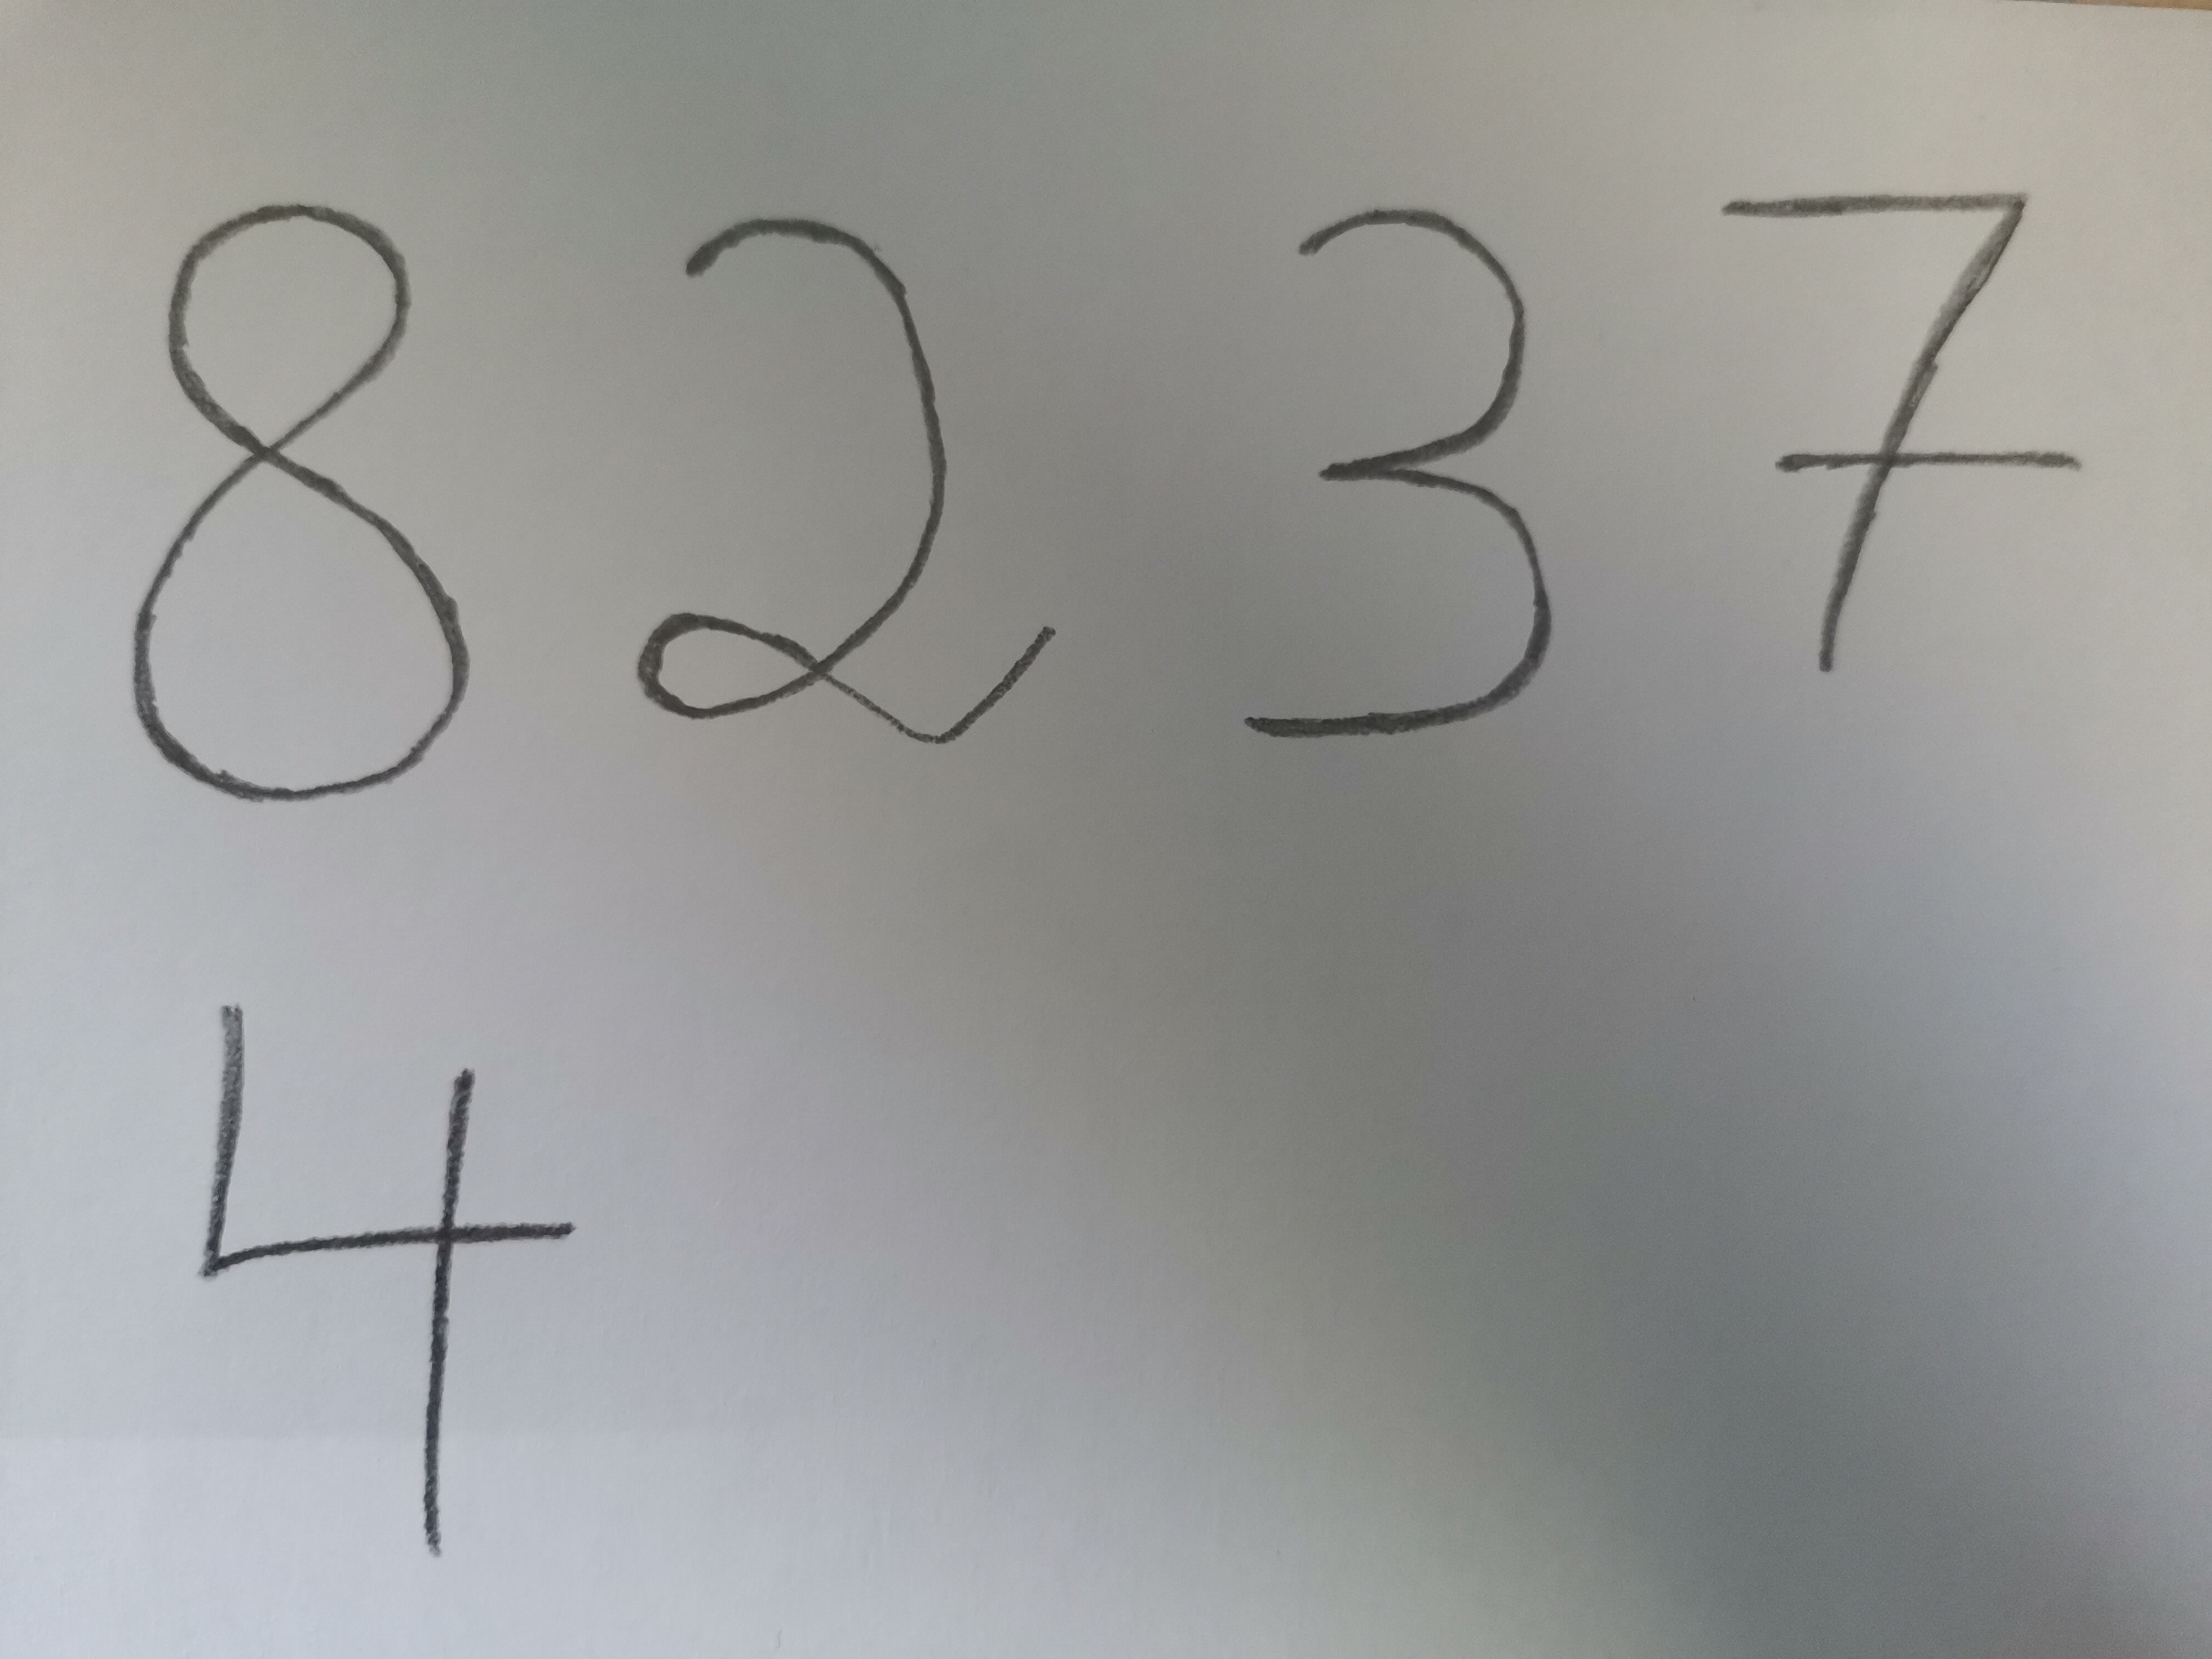 8 2 3 7
4